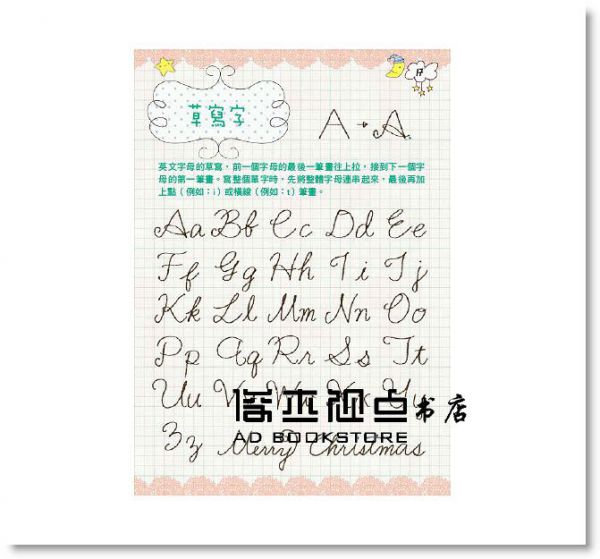 草寫字
A → A
英文字母的草寫，前一個字母的最後一筆畫往上拉，接到下一個字
母的第一筆畫。寫整個單字時，先將整體字母連串起來，最後再加
上點（例如：i）或橫線（例如：t）筆畫。
Aa Bb Cc Dd Ee
Ff Gg Hh Ii Jj
Kk Ll Mm Nn Oo
Pp Qq Rr Ss Tt
Uu Vv Ww Xx Yy
书店
AD BOOKSTORE
Zz Merry Christmas